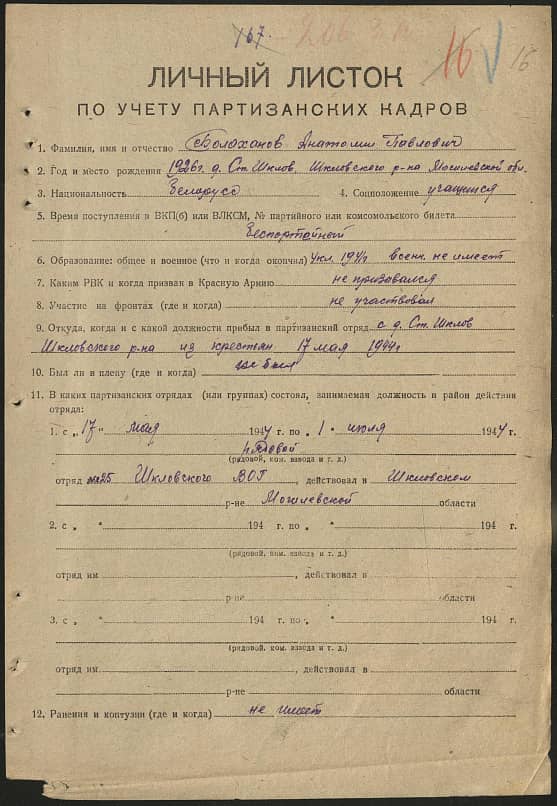 167. 206 16 16
ЛИЧНЫЙ ЛИСТОК
ПО УЧЕТУ ПАРТИЗАНСКИХ КАДРОВ
1. Фамилия, имя и отчество Болаханов Анатолий Павлович
2. Год и место рождения 1926г. д. Ст. Шклов, Шкловского р-на Могилевской обл.
3. Национальность Белорусс 4. Соцположение учащийся
5. Время поступления в ВКП(б) или ВЛКСМ, № партийного или комсомольского билета
беспартийный
6. Образование: общее и военное (что и когда окончил) 4 кл. 1941г военн. не имеет
7. Каким РВК и когда призван в Красную Армию не призывался
8. Участие на фронтах (где и когда) не участвовал
9. Откуда, когда и с какой должности прибыл в партизанский отряд с д. Ст. Шклов
Шкловского р-на из крестьян 17 мая 1944г
10. Был ли в плену (где и когда) не был
11. В каких партизанских отрядах (или группах) состоял, занимаемая должность и район действия
отряда:
1. с „17 " мая 1944 г. по „ 1 " июля 1944 г.
рядовой
(рядовой, ком. взвода и т. д.)
отряд №25 Шкловского ВОГ, действовал в Шкловском
р-не Могилевской области
2. с „ " 194 г. по „ " 194 г.
(рядовой, ком. взвода и т. д.)
отряд им , действовал в
р-не области
3. с „ " 194 г. по „ " 194 г.
(рядовой, ком. взвода и т. д.)
отряд им , действовал в
р-не области
12. Ранения и контузии (где и когда) не имеет